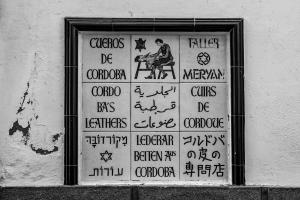 CUEROS
DE
CORDOBA
TALLER
MERYAN
CORDO
BA'S
LEATHERS
الجلدية
قرطبة
مصنوعات
CUIRS
DE
CORDOUE
מקורדובה
עורות
LEDERAR
BEITEN AUS
CORDOBA
コルドバ
の皮の
専門店